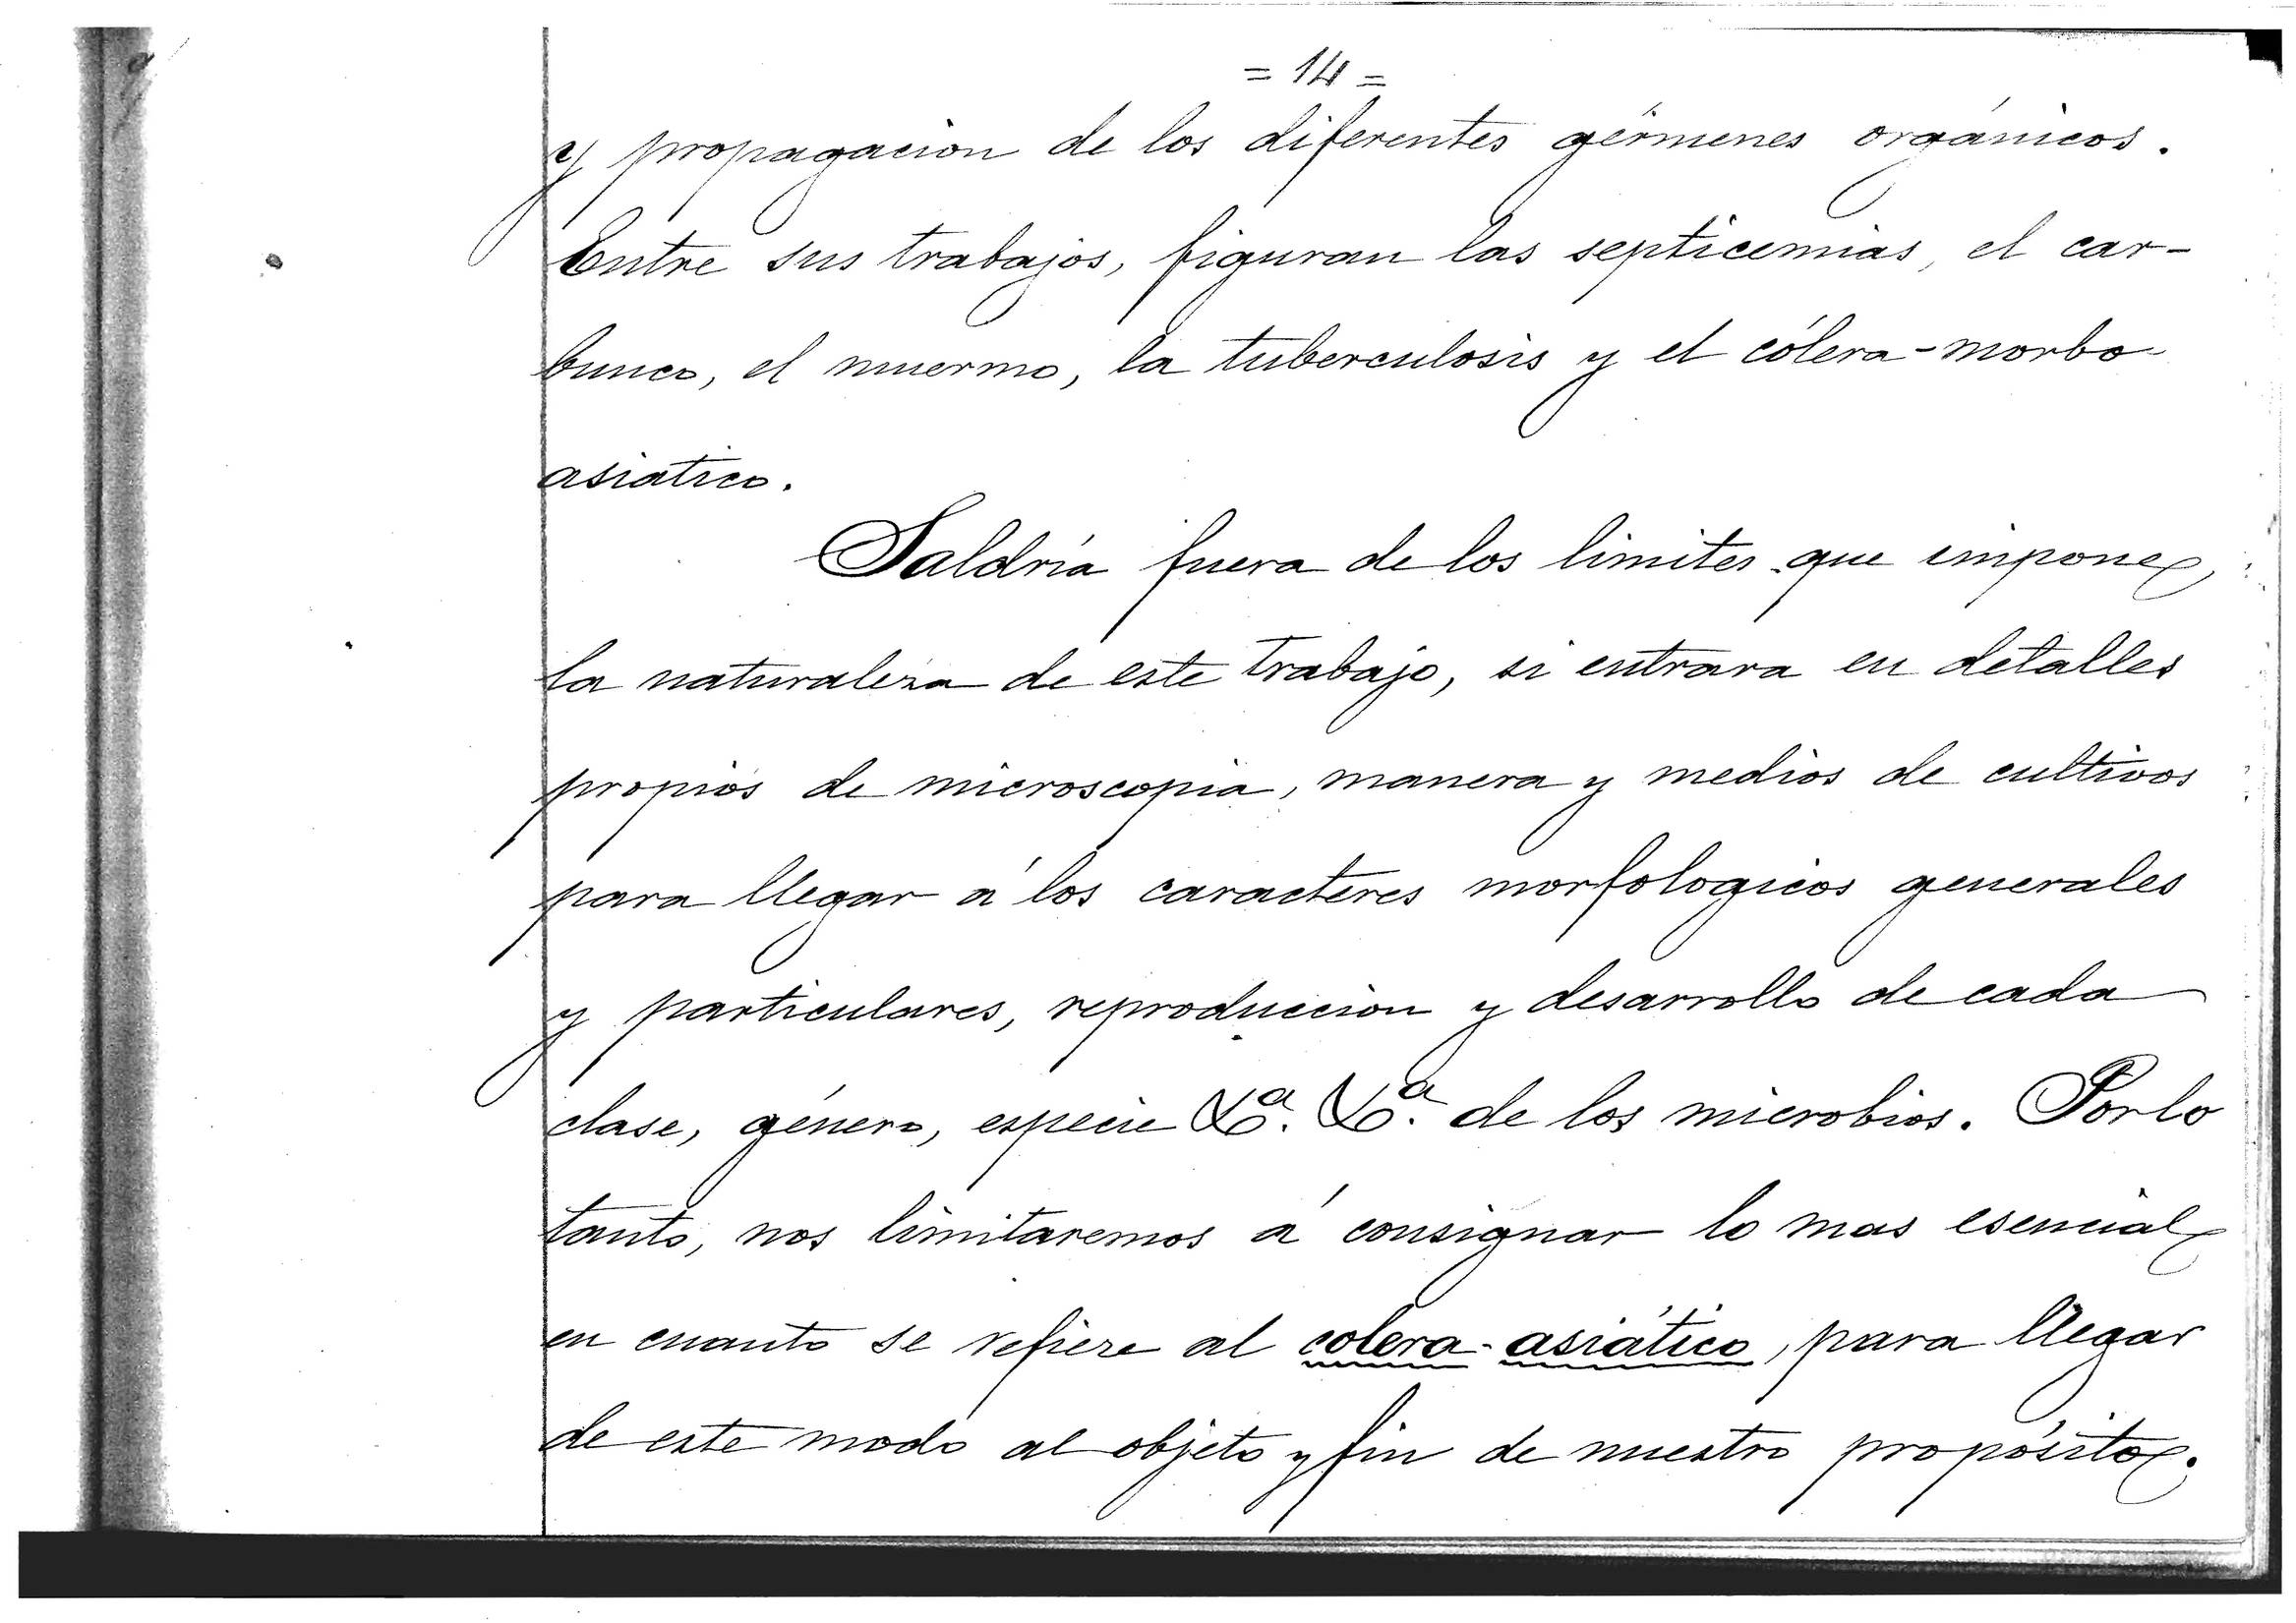 = 14 =
y propagacion de los diferentes gérmenes orgánicos.
Entre sus trabajos, figuran las septicemias, el car-
bunco, el muermo, la tuberculosis y el cólera-morbo
asiatico.
Saldría fuera de los limites que impone,
la naturaleza de este trabajo, si entrara en detalles
propios de microscopia, manera y medios de cultivos
para llegar á los caracteres morfologicos generales
y particulares, reproduccion y desarrollo de cada
clase, género, especie &a. &a. de los microbios. Por lo
tanto, nos limitaremos á consignar lo mas esencial
en cuanto se refiere al colera-asiático, para llegar
de este modo al objeto y fin de nuestro propósito.